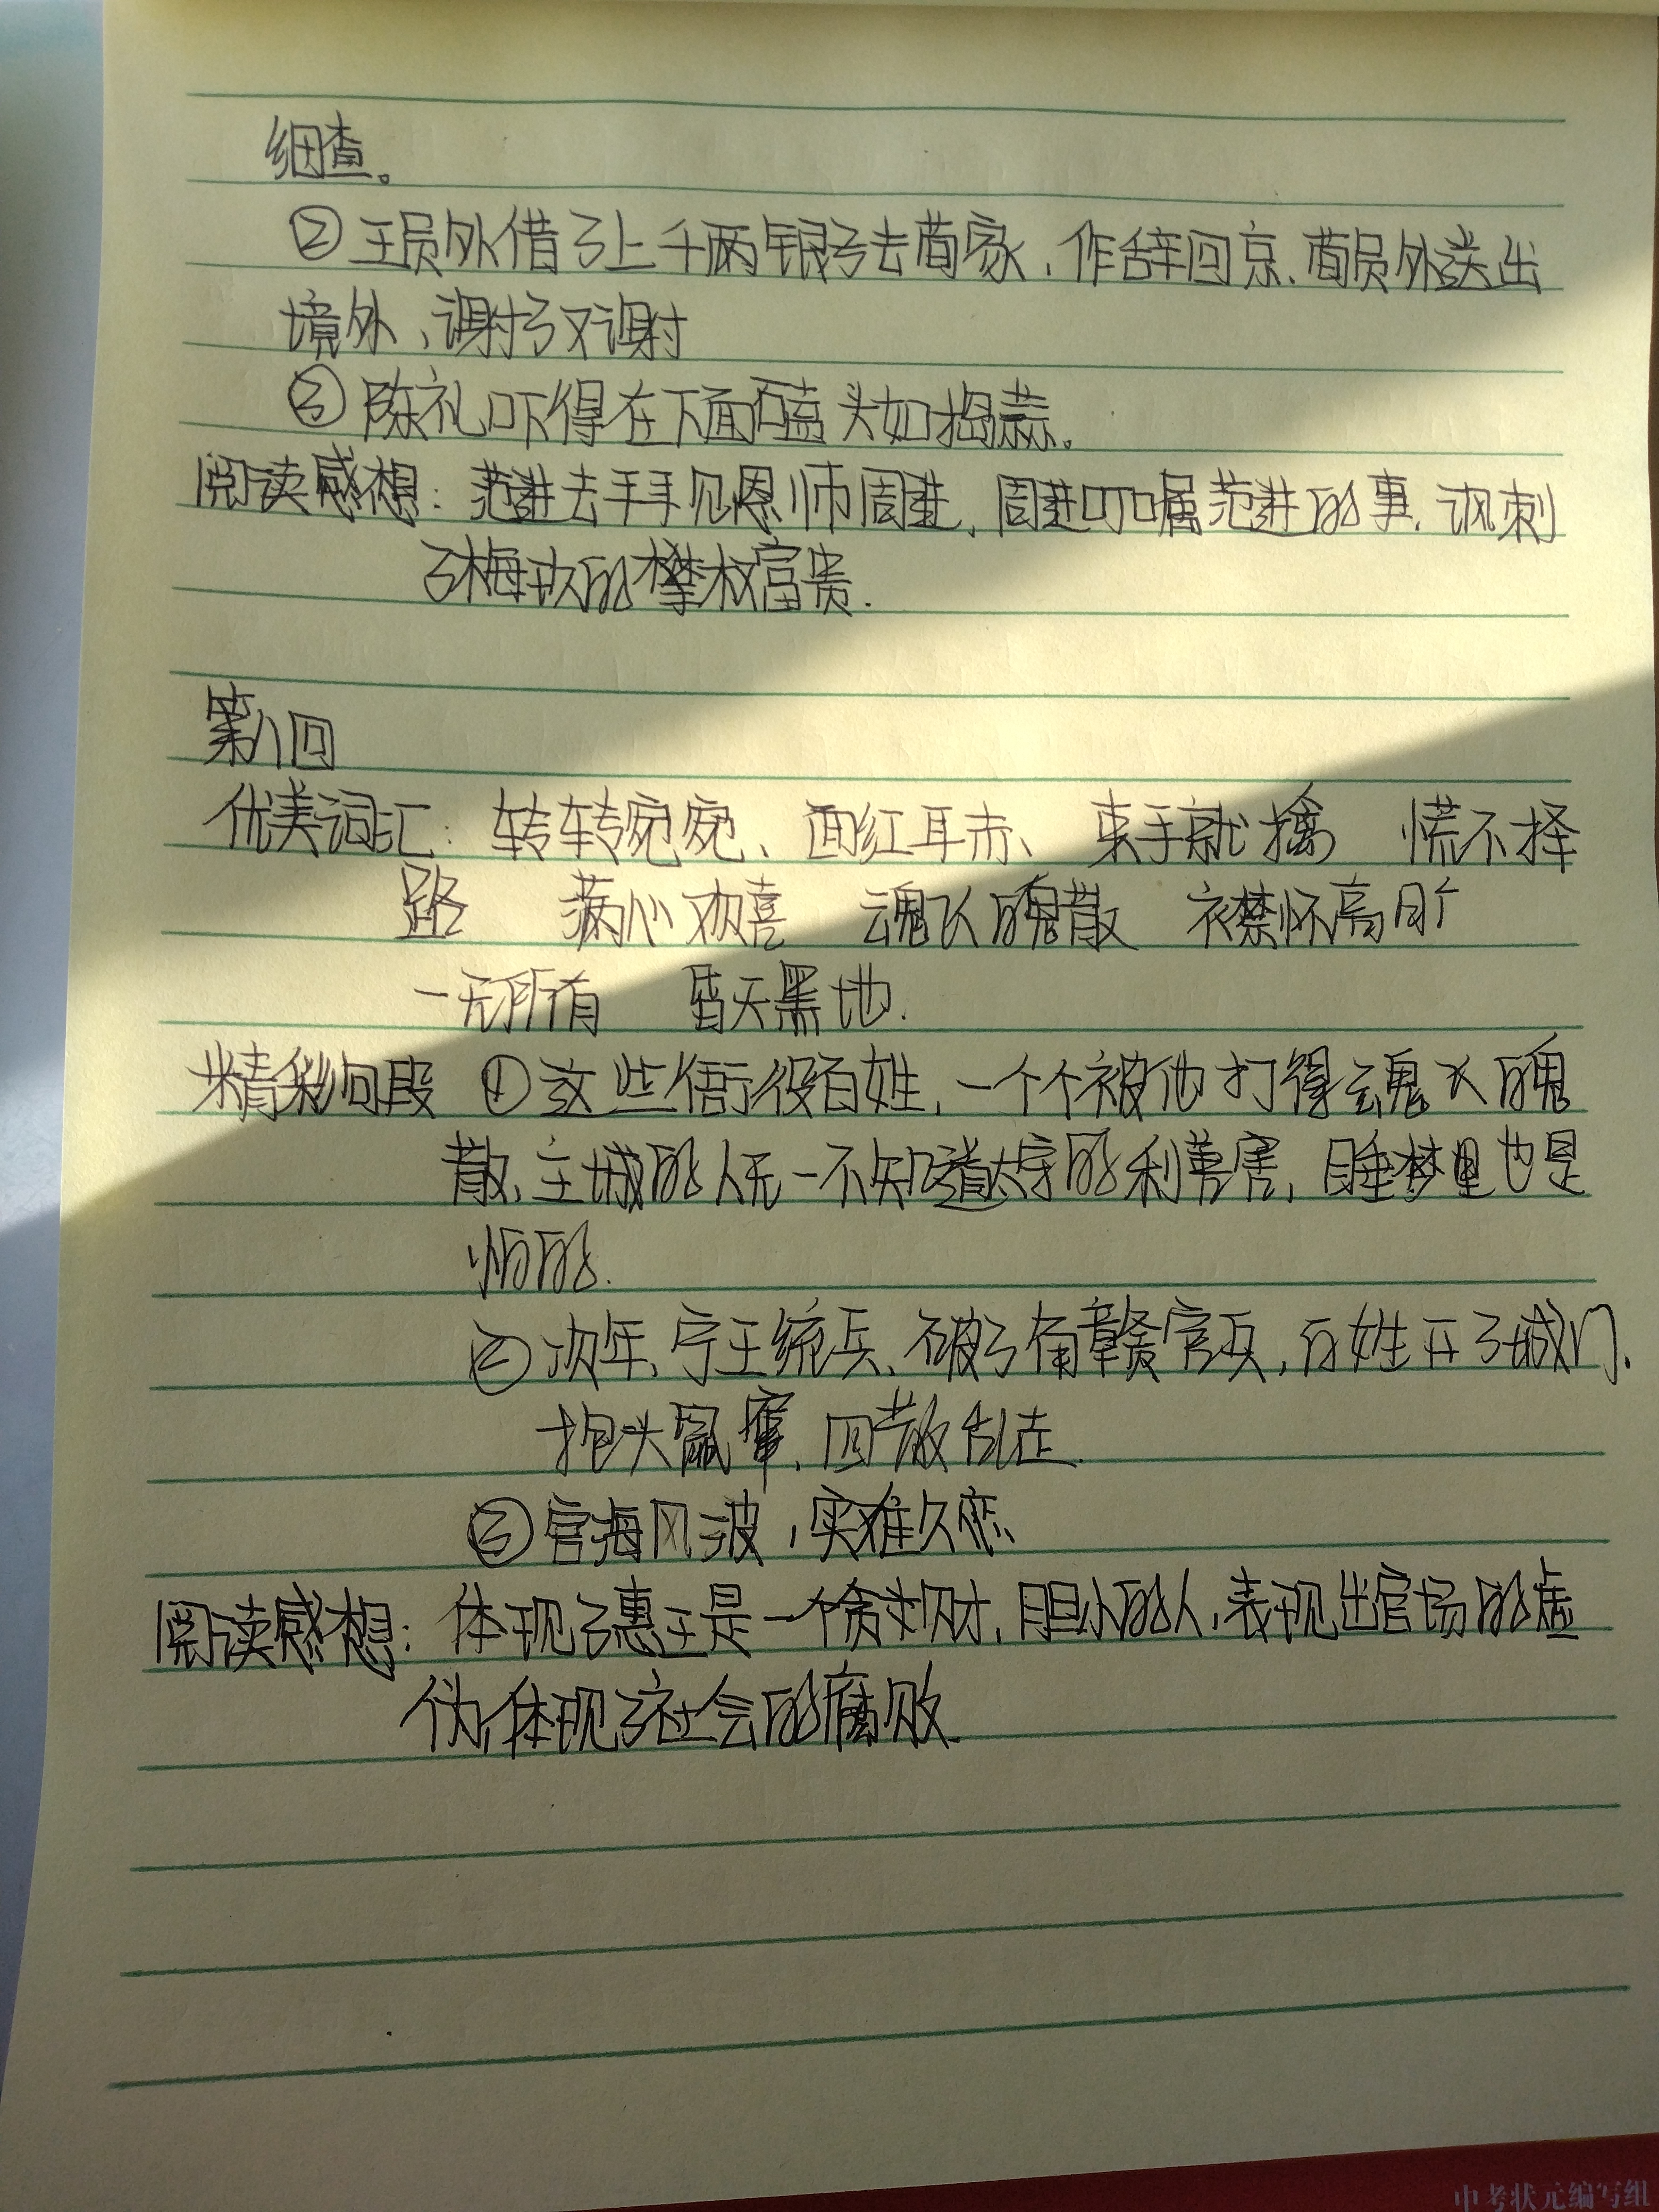 细查。
②王员外借了上千两银子去荀家,作辞回京.荀员外送出
境外、谢了又谢
③陈礼吓得在下面磕头如捣蒜。
阅读感想:范进去拜见恩师周进,周进叮嘱范进的事.讽刺
了梅玖的攀权富贵.
第八回
优美词汇:转转宛宛、面红耳赤、束手就擒 慌不择
路 满心欢喜 魂飞魄散 衣襟怀高旷
一无所有 昏天黑地.
精彩句段 ①这些衙役百姓,一个个被他打得魂飞魄
散、主城的人无一不知道太守的利害,睡梦里也是
怕的.
②次年、宁王统兵、破了南赣官兵,百姓开了城门、
抱头鼠窜,四散乱走.
③宦海风波,实难久恋、
阅读感想:体现了惠王是一个贪财,胆小的人,表现出官场的虚
伪,体现了社会的腐败.
中考状元编写组